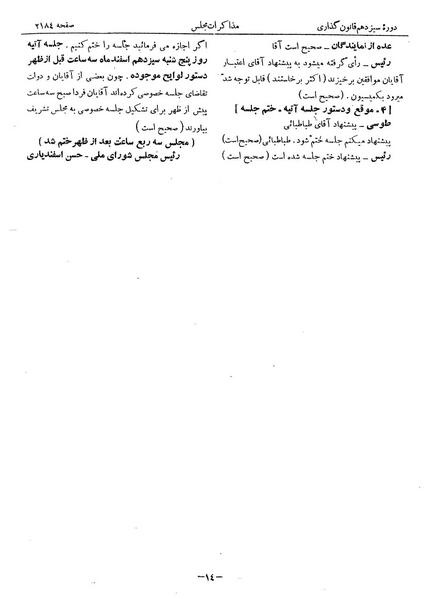 دورهٔ سیزدهم قانون گذاری
مذاکرات مجلس
صفحه ۲۱۸۴
عده از نمایندگان ــ صحیح است آقا
رئیس ــ رأی گرفته میشود به پیشنهاد آقای اعتبار
آقایان موافقین برخیزند ( اکثر برخاستند ) قابل توجه شد
میرود بکمیسیون . (صحیح است)
[ ۴ ـ موقع ودستور جلسه آتیه ـ ختم جلسه ]
طوسی ــ پیشنهاد آقای طباطبائی
پیشنهاد میکنم جلسه ختم شود. طباطبائی(صحیح است)
رئیس ــ پیشنهاد ختم جلسه شده است ( صحیح است )
اگر اجازه می فرمائید جلسه را ختم کنیم . جلسه آتیه
روز پنج شنبه سیزدهم اسفندماه سه ساعت قبل از ظهر
دستور لوایح موجوده . چون بعضی از آقایان و دولت
تقاضای جلسه خصوصی کرده‌اند آقایان فردا صبح سه ساعت
پیش از ظهر برای تشکیل جلسه خصوصی به مجلس تشریف
بیاورند ( صحیح است )
( مجلس سه ربع ساعت بعد از ظهر ختم شد )
رئیس مجلس شورای ملی ـ حسن اسفندیاری
ـ ۱۴ ـ